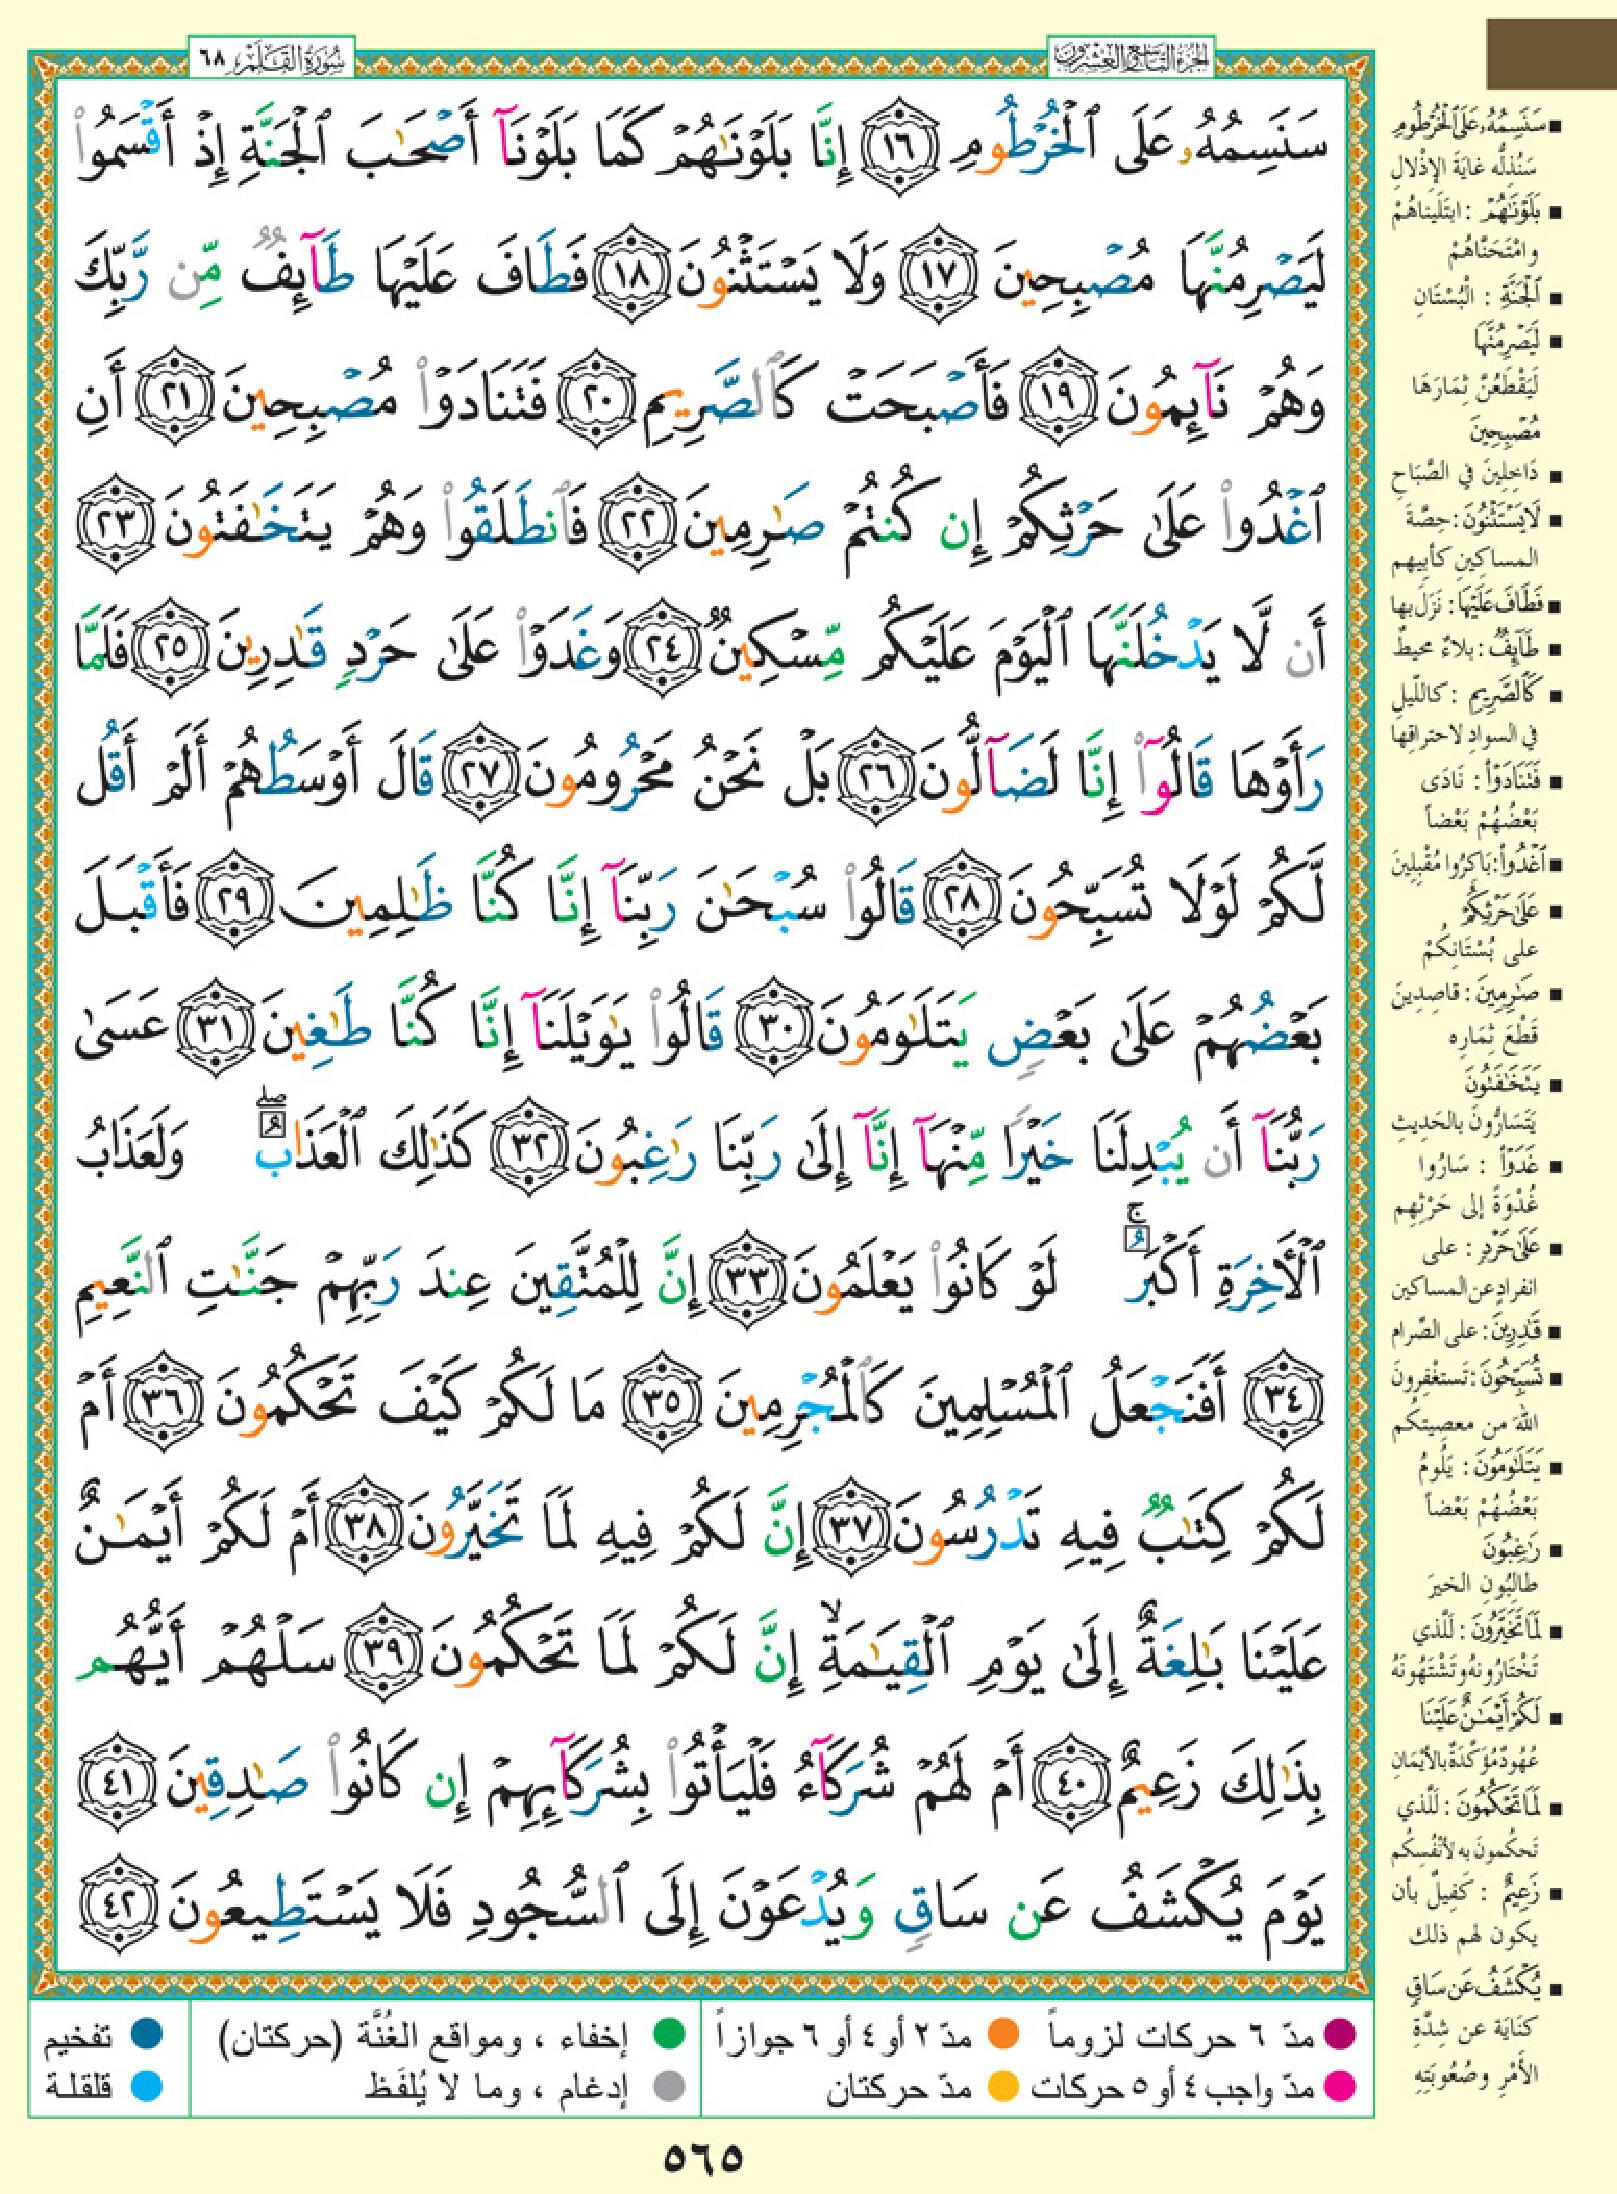 الجزء التاسع والعشرون
سُورَةُ القَلَمِ ٦٨
سَنَسِمُهُۥ عَلَى ٱلْخُرْطُومِ ١٦ إِنَّا بَلَوْنَٰهُمْ كَمَا بَلَوْنَآ أَصْحَٰبَ ٱلْجَنَّةِ إِذْ أَقْسَمُوا۟
لَيَصْرِمُنَّهَا مُصْبِحِينَ ١٧ وَلَا يَسْتَثْنُونَ ١٨ فَطَافَ عَلَيْهَا طَآئِفٌ مِّن رَّبِّكَ
وَهُمْ نَآئِمُونَ ١٩ فَأَصْبَحَتْ كَٱلصَّرِيمِ ٢٠ فَتَنَادَوْا۟ مُصْبِحِينَ ٢١ أَنِ
ٱغْدُوا۟ عَلَىٰ حَرْثِكُمْ إِن كُنتُمْ صَٰرِمِينَ ٢٢ فَٱنطَلَقُوا۟ وَهُمْ يَتَخَٰفَتُونَ ٢٣
أَن لَّا يَدْخُلَنَّهَا ٱلْيَوْمَ عَلَيْكُم مِّسْكِينٌ ٢٤ وَغَدَوْا۟ عَلَىٰ حَرْدٍ قَٰدِرِينَ ٢٥ فَلَمَّا
رَأَوْهَا قَالُوٓا۟ إِنَّا لَضَآلُّونَ ٢٦ بَلْ نَحْنُ مَحْرُومُونَ ٢٧ قَالَ أَوْسَطُهُمْ أَلَمْ أَقُل
لَّكُمْ لَوْلَا تُسَبِّحُونَ ٢٨ قَالُوا۟ سُبْحَٰنَ رَبِّنَآ إِنَّا كُنَّا ظَٰلِمِينَ ٢٩ فَأَقْبَلَ
بَعْضُهُمْ عَلَىٰ بَعْضٍ يَتَلَٰوَمُونَ ٣٠ قَالُوا۟ يَٰوَيْلَنَآ إِنَّا كُنَّا طَٰغِينَ ٣١ عَسَىٰ
رَبُّنَآ أَن يُبْدِلَنَا خَيْرًا مِّنْهَآ إِنَّآ إِلَىٰ رَبِّنَا رَٰغِبُونَ ٣٢ كَذَٰلِكَ ٱلْعَذَابُ ۖ وَلَعَذَابُ
ٱلْـَٔاخِرَةِ أَكْبَرُ ۚ لَوْ كَانُوا۟ يَعْلَمُونَ ٣٣ إِنَّ لِلْمُتَّقِينَ عِندَ رَبِّهِمْ جَنَّٰتِ ٱلنَّعِيمِ
٣٤ أَفَنَجْعَلُ ٱلْمُسْلِمِينَ كَٱلْمُجْرِمِينَ ٣٥ مَا لَكُمْ كَيْفَ تَحْكُمُونَ ٣٦ أَمْ
لَكُمْ كِتَٰبٌ فِيهِ تَدْرُسُونَ ٣٧ إِنَّ لَكُمْ فِيهِ لَمَا تَخَيَّرُونَ ٣٨ أَمْ لَكُمْ أَيْمَٰنٌ
عَلَيْنَا بَٰلِغَةٌ إِلَىٰ يَوْمِ ٱلْقِيَٰمَةِ ۙ إِنَّ لَكُمْ لَمَا تَحْكُمُونَ ٣٩ سَلْهُمْ أَيُّهُم
بِذَٰلِكَ زَعِيمٌ ٤٠ أَمْ لَهُمْ شُرَكَآءُ فَلْيَأْتُوا۟ بِشُرَكَآئِهِمْ إِن كَانُوا۟ صَٰدِقِينَ ٤١
يَوْمَ يُكْشَفُ عَن سَاقٍ وَيُدْعَوْنَ إِلَى ٱلسُّجُودِ فَلَا يَسْتَطِيعُونَ ٤٢
■ سَنَسِمُهُۥ عَلَى ٱلْخُرْطُومِ
سَنُذِلُّه غايَةَ الإِذْلالِ
■ بَلَوْنَٰهُمْ : ابتَلَيناهُمْ
وامْتَحَنَّاهُمْ
■ ٱلْجَنَّةِ : الْبُسْتَانِ
■ لَيَصْرِمُنَّهَا
لَيَقْطَعُنَّ ثِمَارَهَا
مُصْبِحِينَ
■ دَاخِلِينَ في الصَّبَاحِ
■ لَا يَسْتَثْنُونَ : حِصَّةَ
المساكِينِ كأبِيهم
■ فَطَافَ عَلَيْهَا : نَزَلَ بها
■ طَآئِفٌ : بلاءٌ محيطٌ
■ كَٱلصَّرِيمِ : كاللّيلِ
في السوادِ لاحتراقها
■ فَتَنَادَوْا۟ : نَادَى
بَعْضُهُمْ بَعْضاً
■ ٱغْدُوا۟ : بَاكِرُوا مُقْبِلِينَ
■ عَلَىٰ حَرْثِكُمْ
على بُسْتَانِكُمْ
■ صَٰرِمِينَ : قاصِدِينَ
قَطْعَ ثِمَارِه
■ يَتَخَٰفَتُونَ
يَتَسَارُّونَ بالحَدِيثِ
■ غَدَوْا۟ : سَارُوا
غُدْوَةً إلى حَرْثِهِم
■ عَلَىٰ حَرْدٍ : على
انفرادٍ عن المساكين
■ قَٰدِرِينَ : على الصِّرام
■ تُسَبِّحُونَ : تَستغْفِرونَ
اللهَ من معصِيتِكُم
■ يَتَلَٰوَمُونَ : يَلُومُ
بَعْضُهُمْ بَعْضاً
■ رَٰغِبُونَ
طالِبُونَ الخيرَ
■ لَمَا تَخَيَّرُونَ : لَلَّذي
تَخْتَارُونهُ وتَشْتَهُونَهُ
■ لَكُمْ أَيْمَٰنٌ عَلَيْنَا
عُهُودٌ مُؤكَّدَةٌ بالأيْمَانِ
■ لَمَا تَحْكُمُونَ : لَلَّذي
تَحكُمونَ به لأنْفُسِكُم
■ زَعِيمٌ : كَفِيلٌ بأن
يكون لهم ذلك
■ يُكْشَفُ عَن سَاقٍ
كنَايَة عن شِدَّةِ
الأَمْرِ وصُعُوبَتِهِ
مدّ ٦ حركات لزوماً مدّ ٢ أو ٤ أو ٦ جوازاً إخفاء ، ومواقع الغُنَّة (حركتان) تفخيم
مدّ واجب ٤ أو ٥ حركات مدّ حركتان إدغام ، وما لا يُلفَظ قلقلة
٥٦٥